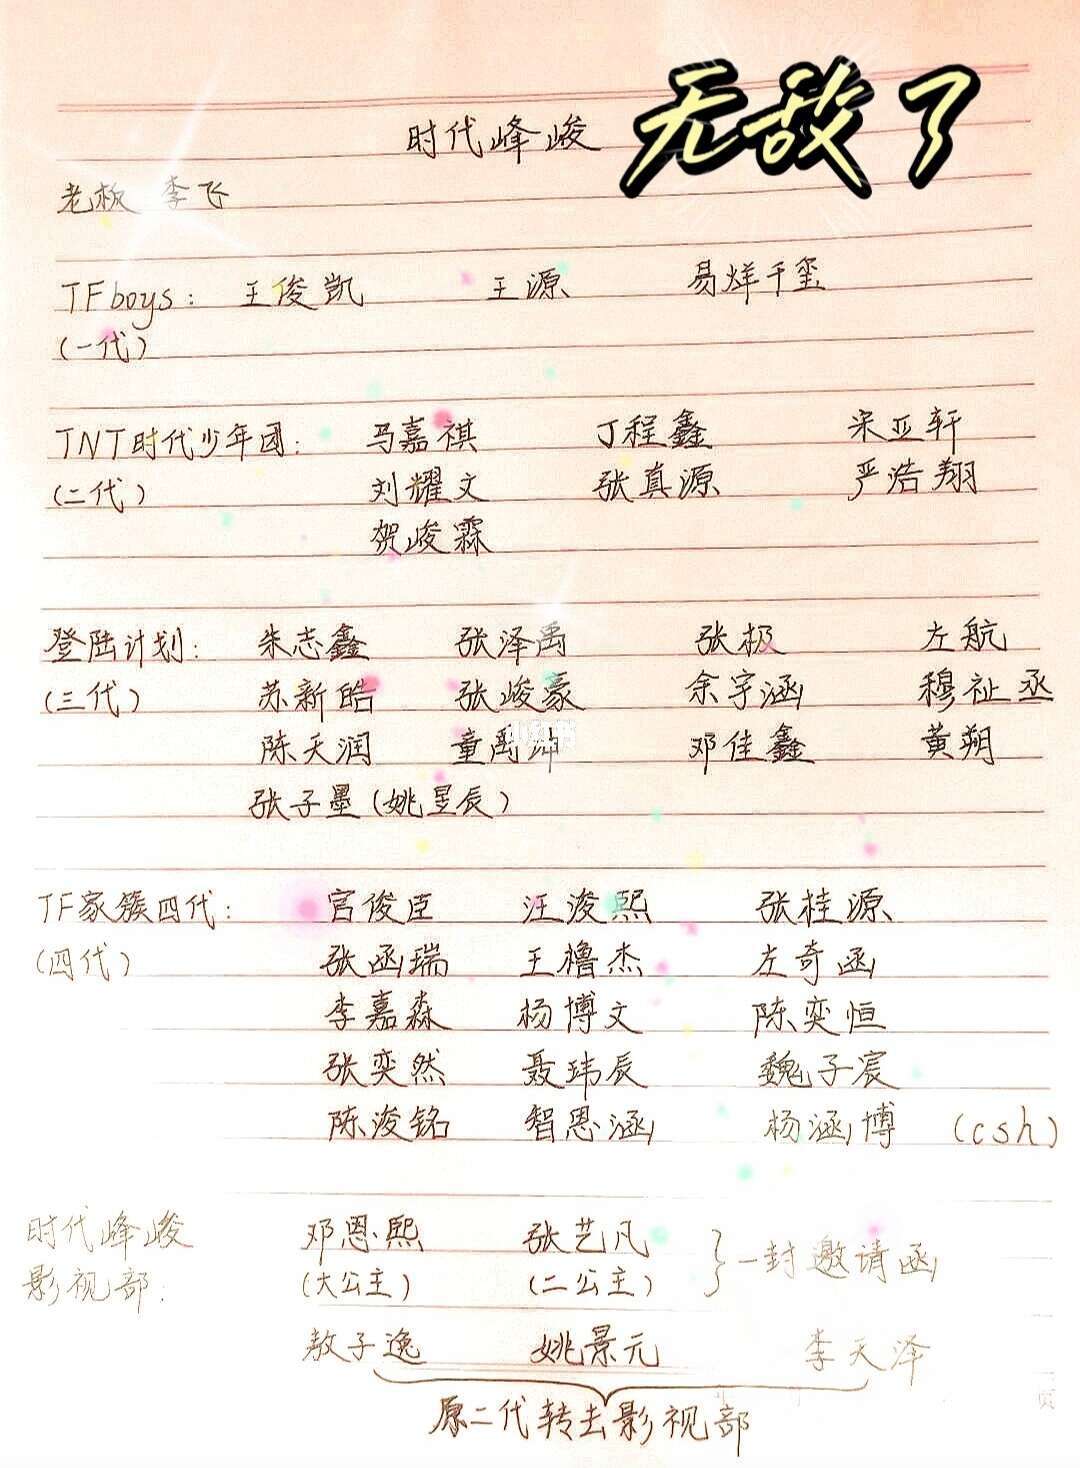 无敌了
时代峰峻
老板 李飞
TFboys: 王俊凯 王源 易烊千玺
(一代)
TNT时代少年团: 马嘉祺 丁程鑫 宋亚轩
(二代) 刘耀文 张真源 严浩翔
贺峻霖
登陆计划: 朱志鑫 张泽禹 张极 左航
(三代) 苏新皓 张峻豪 余宇涵 穆祉丞
陈天润 童禹坤 邓佳鑫 黄朔
小红书
张子墨(姚昱辰)
TF家簇四代: 官俊臣 汪浚熙 张桂源
(四代) 张函瑞 王橹杰 左奇函
李嘉森 杨博文 陈奕恒
张奕然 聂玮辰 魏子宸
陈浚铭 智恩涵 杨涵博 (csh)
时代峰峻 邓恩熙 张艺凡 }一封邀请函
影视部: (大公主) (二公主)
敖子逸 姚景元 李天泽
原二代转去影视部
页